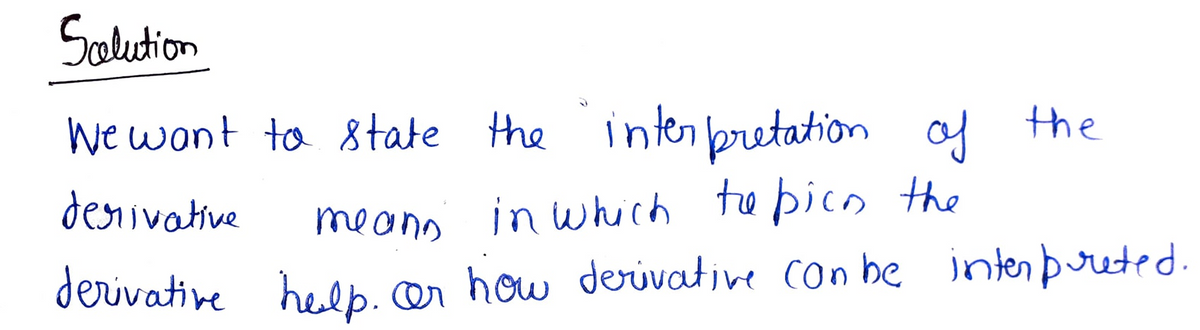 Solution
We want to state the interpretation of the
derivative means in which topics the
derivative help. or how derivative can be interpreted.